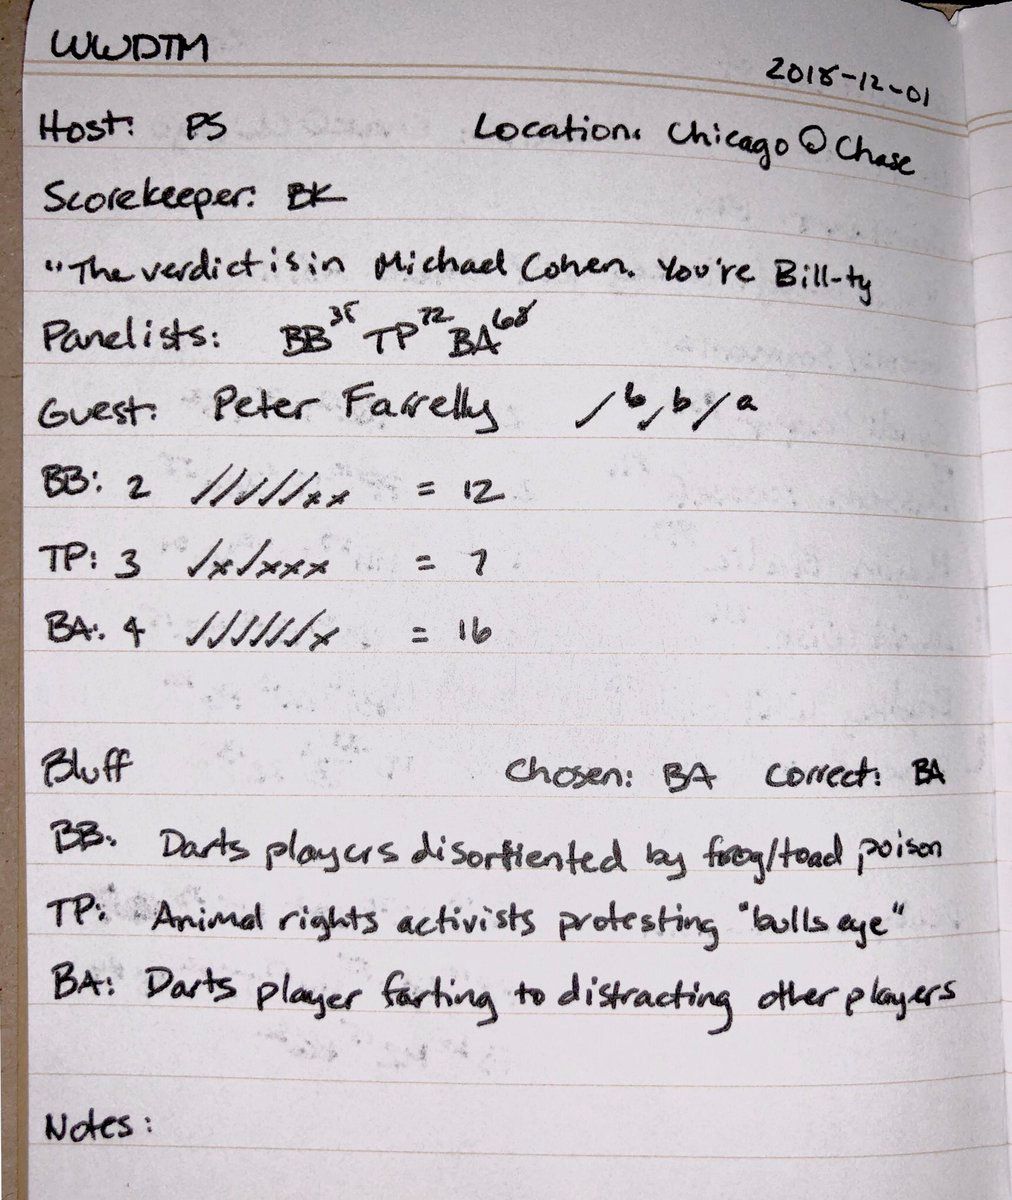 WWDTM
2018-12-01
Host: PS Location: Chicago @ Chase
Scorekeeper: BK
"The verdict is in Michael Cohen. You're Bill-ty
Panelists: BB TP 72 BA 68
Guest: Peter Farrelly / b / b / a
BB: 2 /////xx = 12
TP: 3 /x/xxx = 7
BA: 4 //////x = 16
Bluff Chosen: BA Correct: BA
BB: Darts players disortiented by frog/toad poison
TP: Animal rights activists protesting "bulls eye"
BA: Darts player farting to distracting other players
Notes: